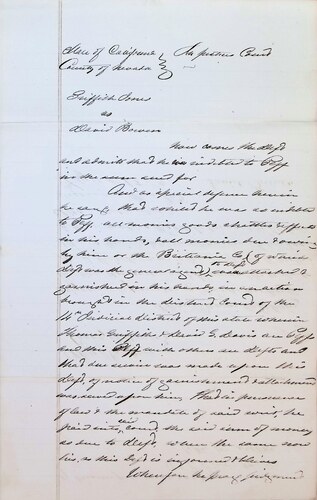 State of California } In Justice Court
County of Nevada }
Griffith Jones
vs
David Bowen
Now comes the Deft
and admits that he is indebted to Plff
in the sum sued for
And as a special defense herein
he says that whilst he was so indebted
to Plff all monies goods chattles & effects
in his hands, & all monies due & owing
by him or the Britania Co of which
Deft was the
garnisheed in his hands in an action
brought in the district Court of the
14th Judicial District of this state wherein
Thomas Griffith & David E. Davis are Plffs
and this Plff with others are Defts and
that due service was made upon this
Deft, of notice of garnishment & attachment
was served upon him, That in pursuance
of law & the mandate of said writ, he
paid into Court the said sum of money
so due to Deft, where the same now
lies, as this Deft is informed & believes
Wherefore he prays judgment